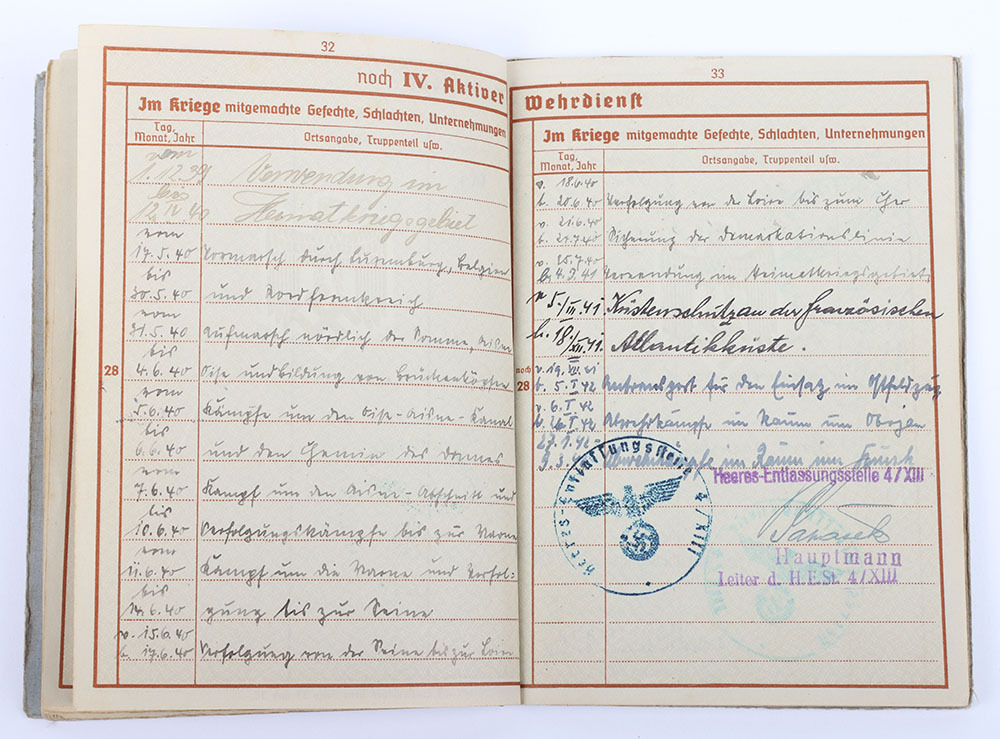 32
noch IV. Aktiver
Im Kriege mitgemachte Gefechte, Schlachten, Unternehmungen
Tag, Monat, Jahr
Ortsangabe, Truppenteil usw.
28
vom
1.12.39
Verwendung im
bis
Heimatkriegsgebiet
vom
17.5.40
Vormarsch durch Luxemburg, Belgien
bis
30.5.40
und Nordfrankreich
vom
31.5.40
Aufmarsch nördlich der Somme, Aisne
bis
4.6.40
Oise und Bildung von Brückenköpfen
vom
5.6.40
Kämpfe um den Oise-Aisne-Kanal
bis
6.6.40
und den Chemin des Dames
vom
7.6.40
Kampf um den Aisne-Abschnitt und
bis
10.6.40
Verfolgungskämpfe bis zur Marne
vom
11.6.40
Kampf um die Marne und Verfol-
bis
14.6.40
gung bis zur Seine
v. 15.6.40
b. 17.6.40
Verfolgung von der Seine bis zur Loire
33
Wehrdienst
Im Kriege mitgemachte Gefechte, Schlachten, Unternehmungen
Tag, Monat, Jahr
Ortsangabe, Truppenteil usw.
noch 28
v. 18.6.40
b. 20.6.40
Verfolgung von der Loire bis zum Cher
v. 21.6.40
b. 24.7.40
Sicherung der Demarkationslinie
v. 25.7.40
Verwendung im Heimatkriegsgebiet
Küstenschutz an der französischen
Atlantikküste.
b. 5.I.42
Antransport für den Einsatz im Ostfeldzug
v. 6.I.42
b. 26.I.42
Abwehrkämpfe im Raum um Obojan
27.1.42-
Abwehrkämpfe im Raum um Kursk
Heeres-Entlassungsstelle 4/XIII
Heeres-Entlassungsstelle 4/XIII
Hauptmann
Leiter d. H.E.St. 4/XIII